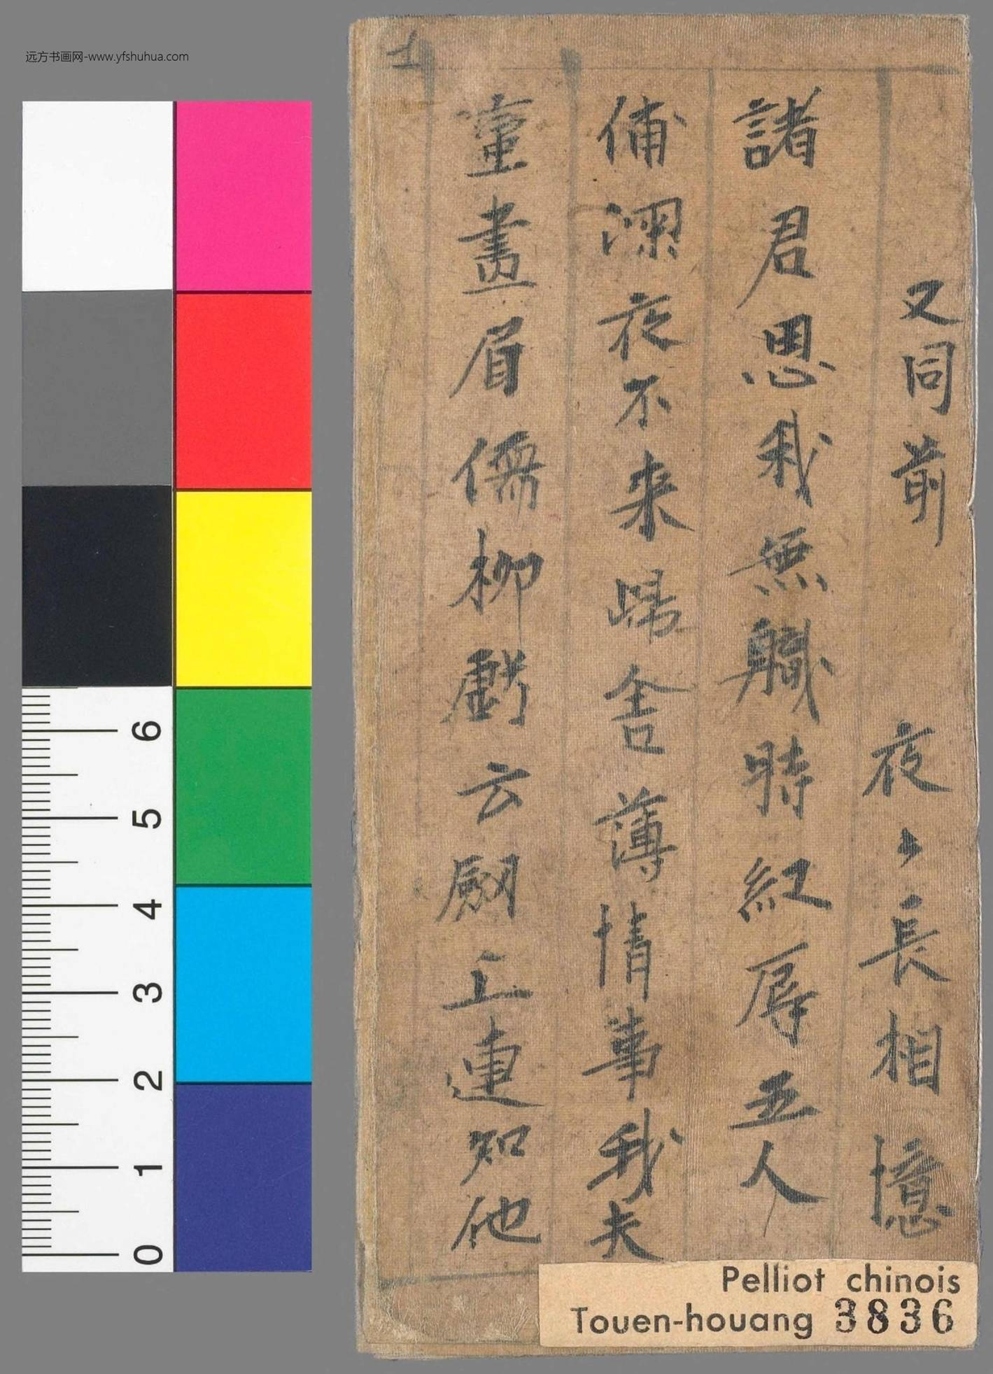 远方书画网-www.yfshuhua.com
又同前 夜〻長相憶
諸君思我無職時紅辱五人
傋深夜不来歸舍薄情事我夫
畫眉儒柳戱云上連知他
6
5
4
3
2
1
0
Pelliot chinois
Touen-houang 3836